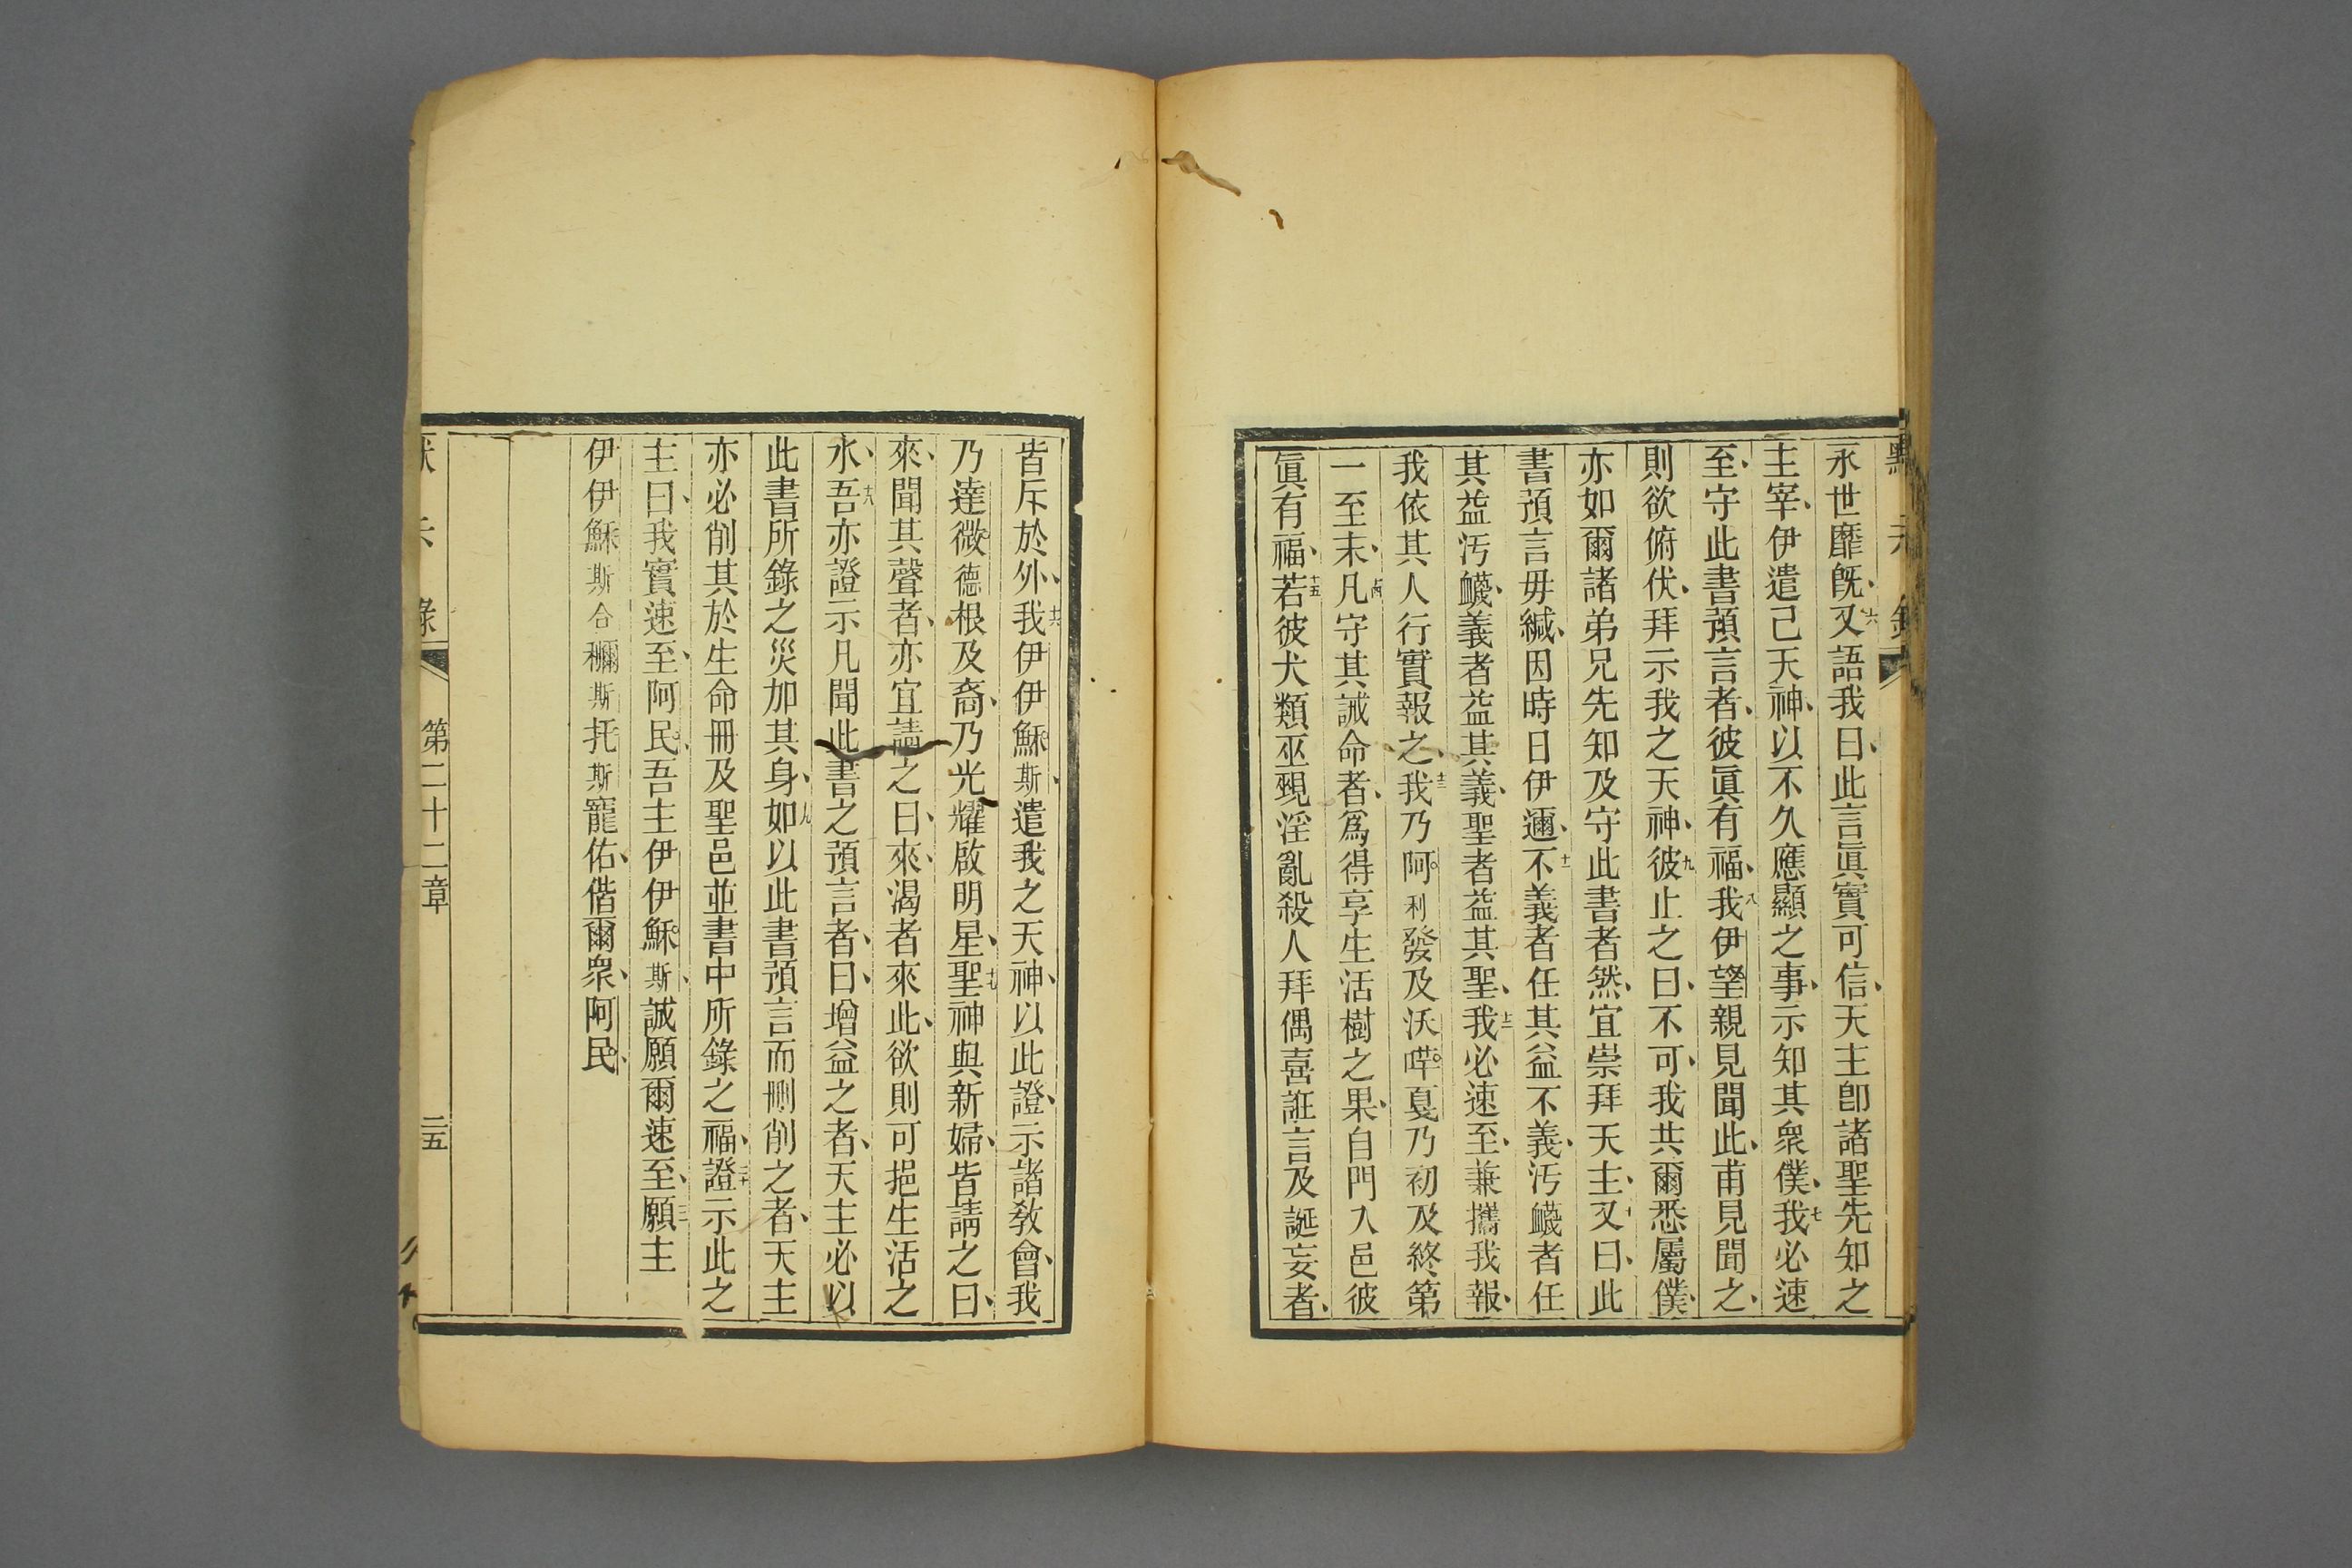 永世靡既、六又語我曰、此言眞實可信、天主卽諸聖先知之
主宰、伊遣己天神、以不久應顯之事、示知其衆僕、七我必速
至、守此書預言者、彼眞有福、八我伊望親見聞此、甫見聞之、
則欲俯伏、拜示我之天神、九彼止之曰、不可、我共爾悉屬僕、
亦如爾諸弟兄先知及守此書者然、宜崇拜天主、十又曰、此
書預言毋緘、因時日伊邇、十一不義者任其益不義、汚衊者任
其益汚衊、義者益其義、聖者益其聖、十二我必速至、兼攜我報、
我依其人行實報之、十三我乃阿利發及沃咩戛乃初及終第
一至末、十四凡守其誡命者、爲得享生活樹之果、自門入邑彼
眞有福、十五若彼犬類巫覡淫亂殺人拜偶喜誑言及誕妄者、
皆斥於外、十六我伊伊穌斯、遣我之天神、以此證、示諸敎會、我
乃達微德根及裔、乃光耀啟明星、十七聖神與新婦、皆請之曰、
來、聞其聲者、亦宜請之曰、來、渴者來此、欲則可挹生活之
水、十八吾亦證示凡聞此書之預言者、曰、增益之者、天主必以
此書所錄之災加其身、十九如以此書預言而刪削之者、天主
亦必削其於生命冊及聖邑並書中所錄之福、二十證示此之
主曰、我實速至、阿民、吾主伊伊穌斯、誠願爾速至、二一願主
伊伊穌斯合穪斯托斯寵佑、偕爾衆、阿民、
第二十二章
二五